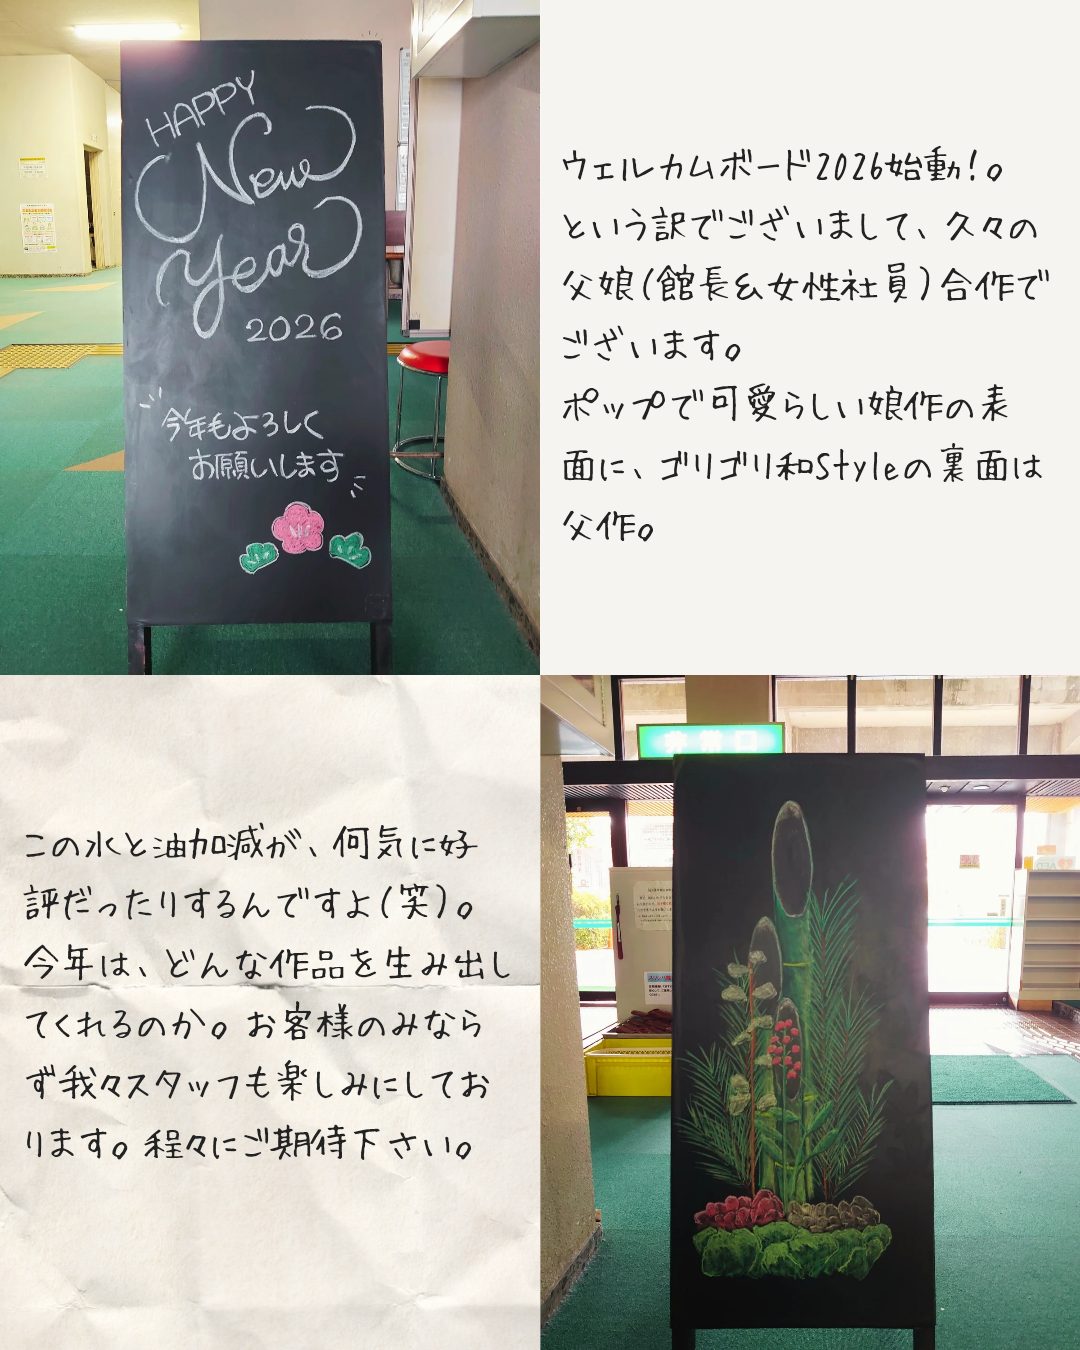 HAPPY
New
Year
2026
今年もよろしく
お願いします
ウェルカムボード2026始動！。
という訳でございまして、久々の
父娘(館長&女性社員)合作で
ございます。
ポップで可愛らしい娘作の表
面に、ゴリゴリ和Styleの裏面は
父作。
この水と油加減が、何気に好
評だったりするんですよ(笑)。
今年は、どんな作品を生み出し
てくれるのか。お客様のみなら
ず我々スタッフも楽しみにしてお
ります。程々にご期待下さい。
非常口